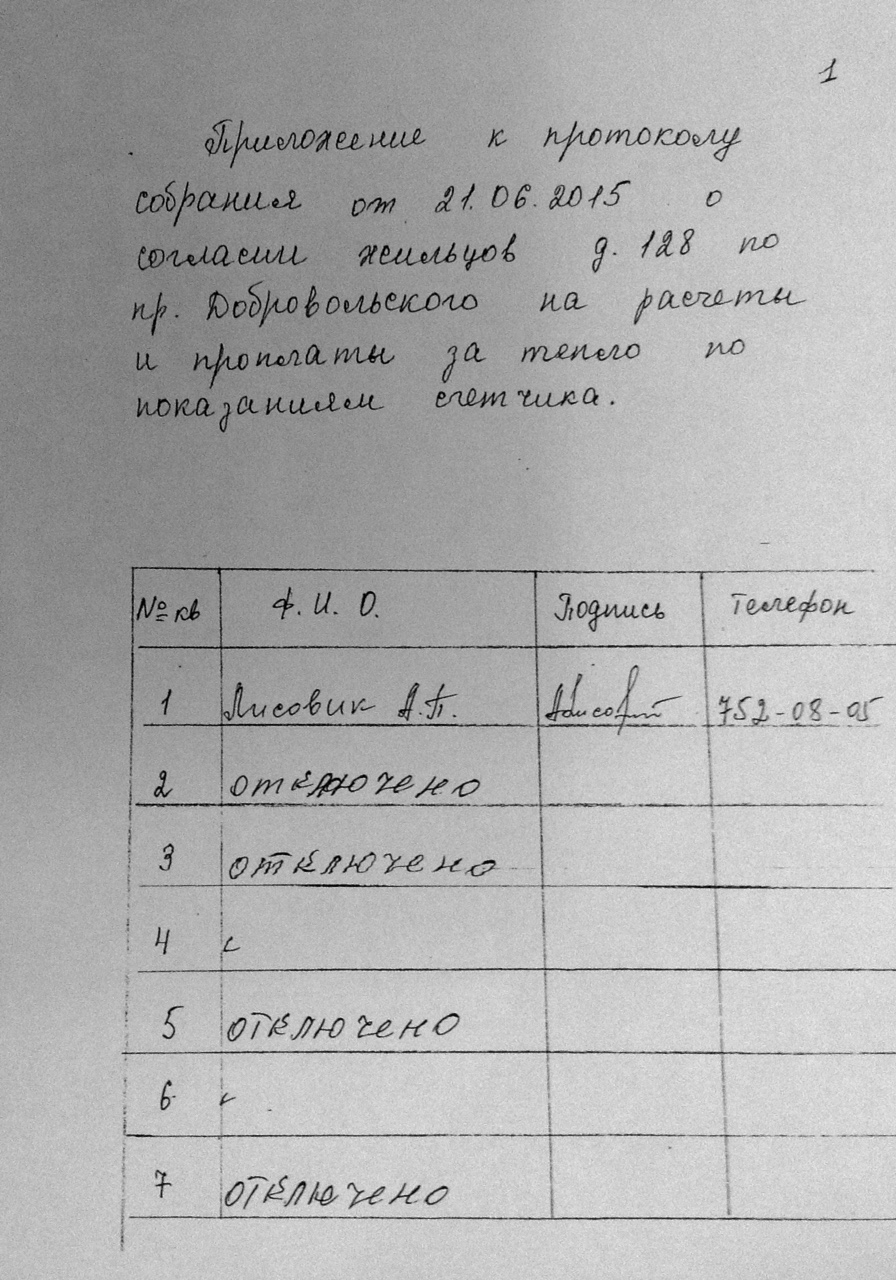 1
Приложение к протоколу
собрания от 21.06.2015 о
согласии жильцов д. 128 по
пр. Добровольского на расчеты
и проплаты за тепло по
показаниям счетчика.
№ кв Ф. И. О. Подпись Телефон
1 Лисовик А.П. 752-08-05
2 отключено
3 отключено
4
5 отключено
6
7 отключено